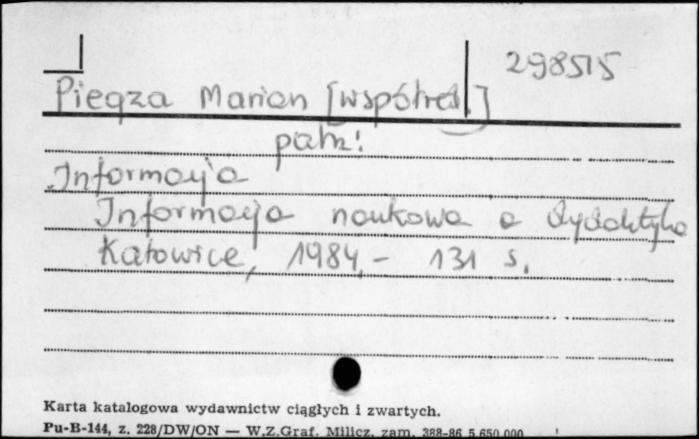 298515
Pieqza Marian [współred]
patrz:
Informacja
Informacja naukowa a dydaktyka
Katowice, 1984,- 131 s.
Karta katalogowa wydawnictw ciągłych i zwartych.
Pu-B-144, z. 228/DW/ON — W.Z.Graf. Milicz, zam. 388-86 5.650.000